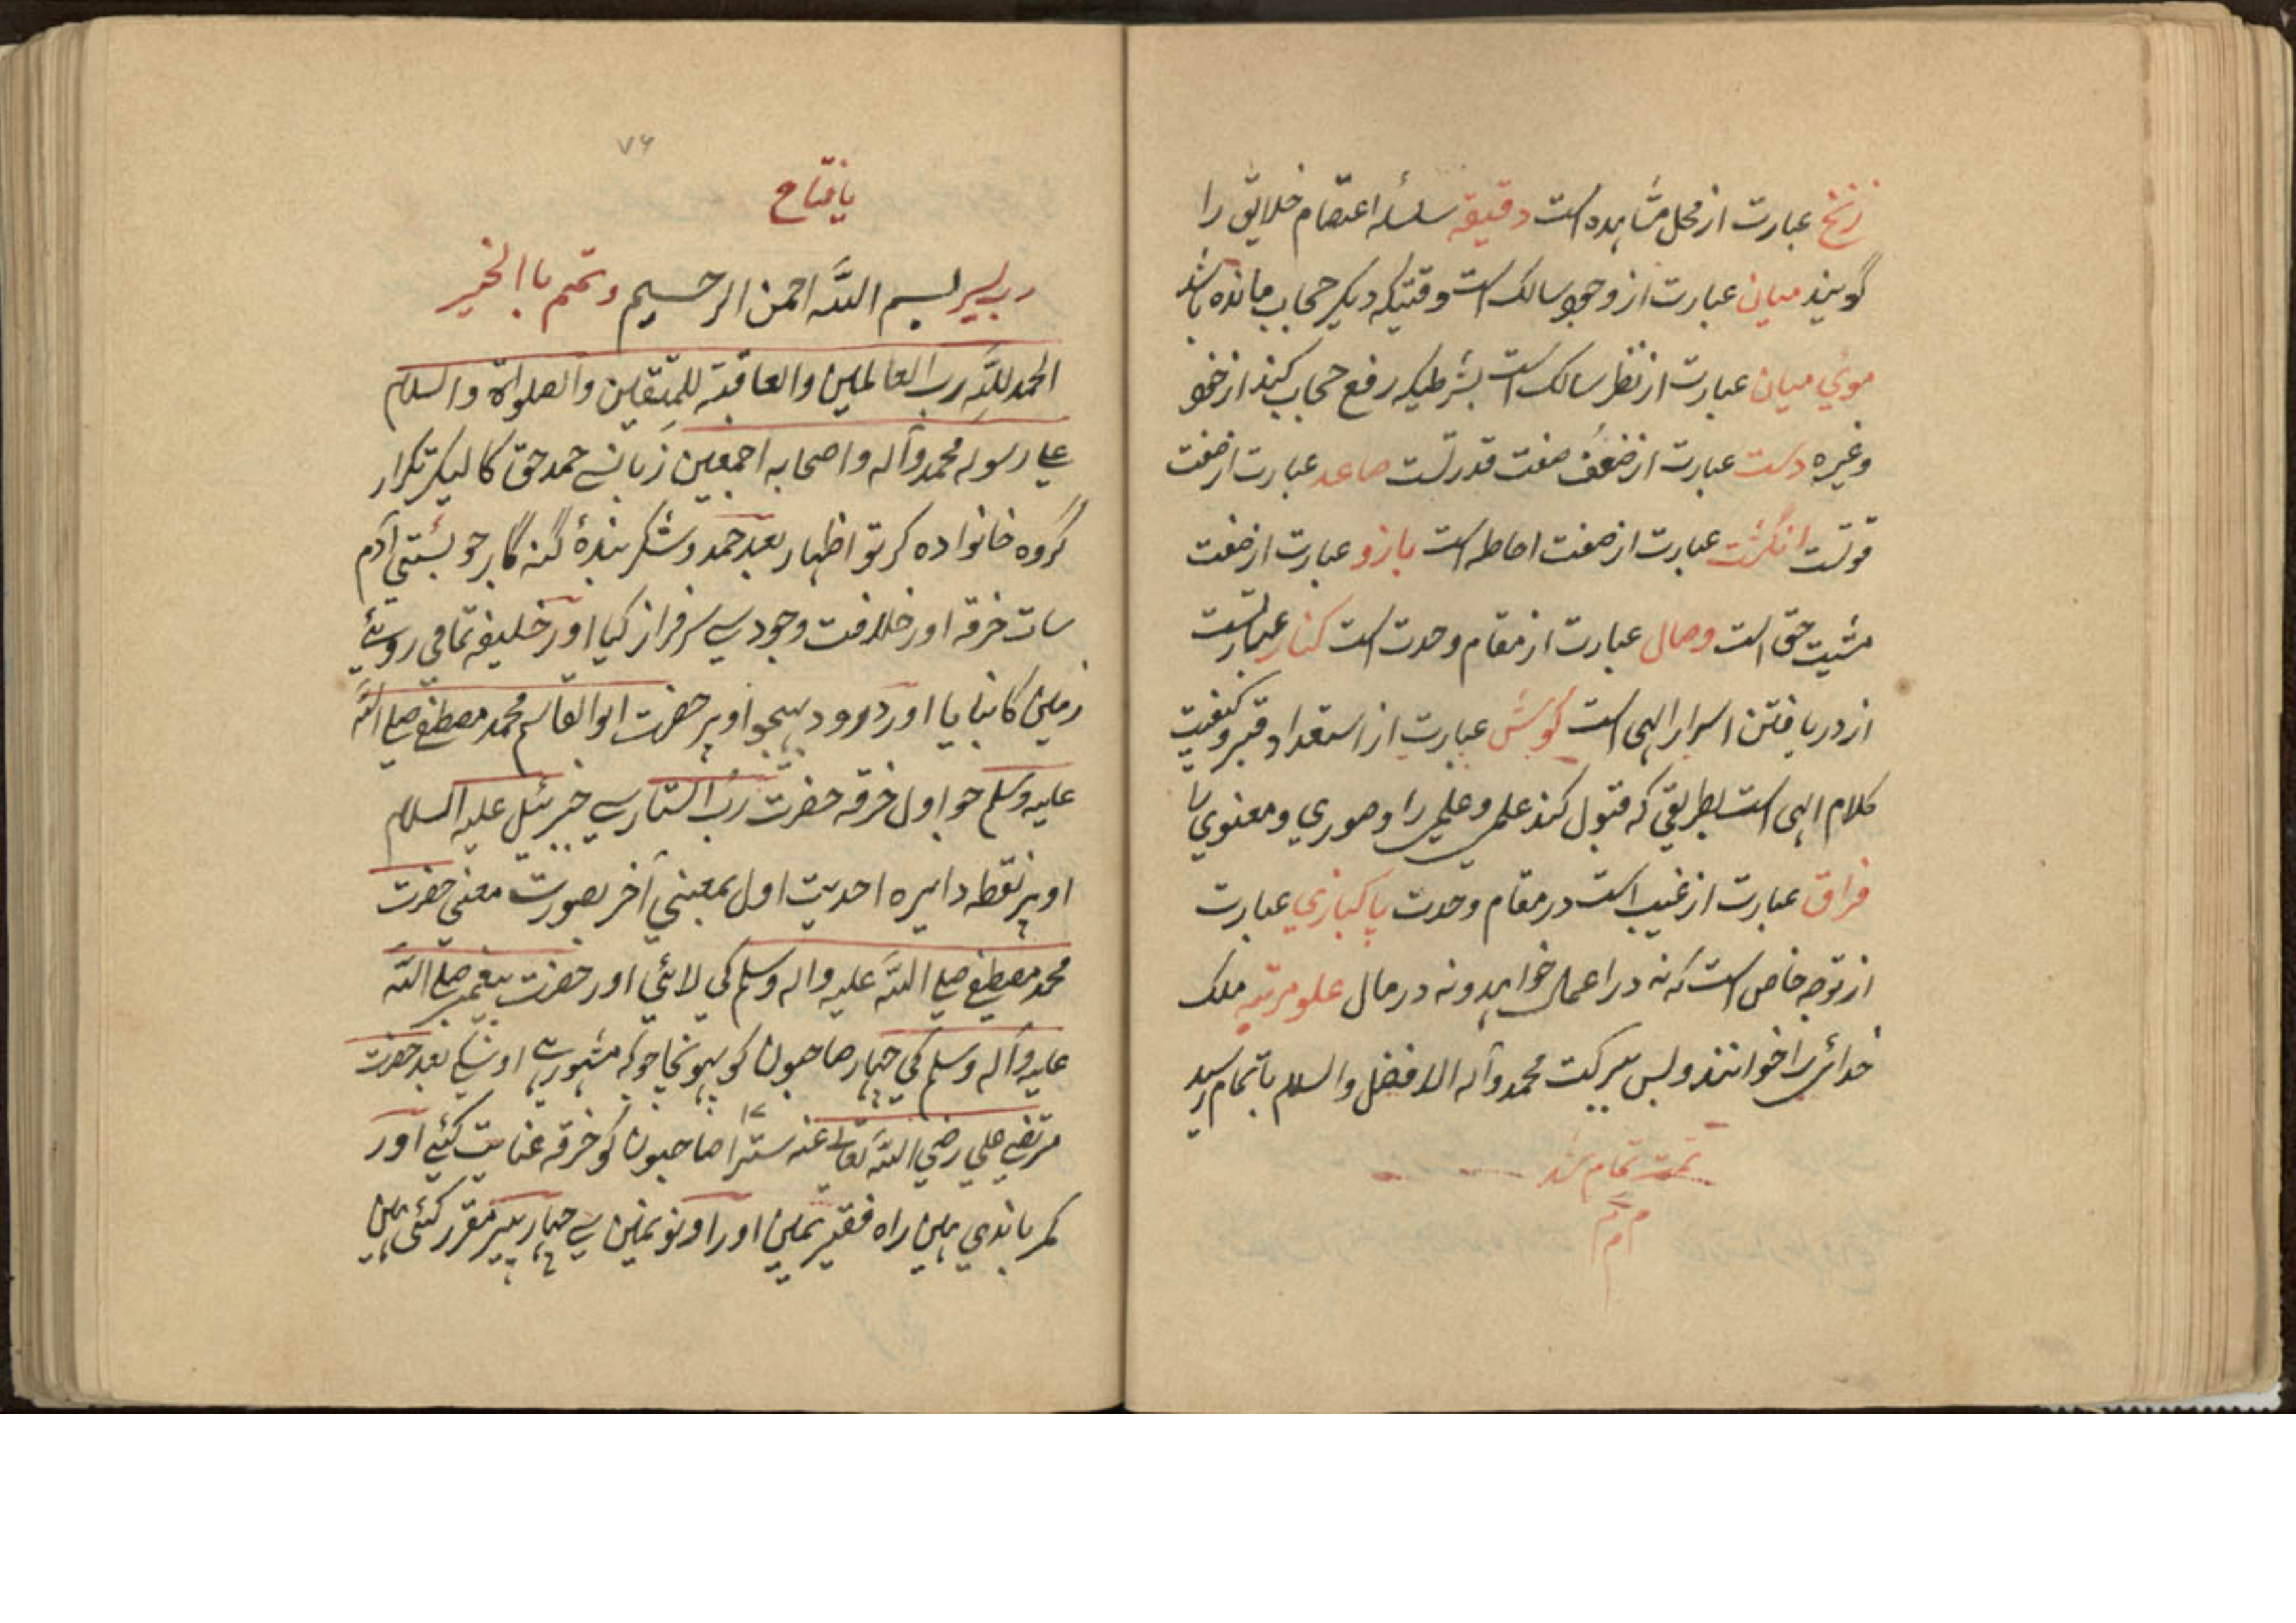 زنخ عبارت از محل مشاهده است دقیقه سلسلهٔ اعتصام خلایق را
گویند میان عبارت از وجود سالک است وقتیکه دیگر حجاب مانده باشد
موئي میان عبارت از نظر سالک است بشرطیکه رفع حجاب کند از خود
وغیره دست عبارت از صفت قدرتست صاعد عبارت از صفت
قوتست انگشت عبارت از صفت احاطه است بازو عبارت از صفت
مشیت حق است وصال عبارت از مقام وحدت است کنار عبارتست
از دریافتن اسرار الهی است گوش عبارت از استعداد کیفیت
کلام الهی است بطریقي که قبول کند علمي و علمي را و صوري و معنوي
فراق عبارت از غیب است در مقام وحدت پاکبازي عبارت
از توجه خاص است که نه در اعمال خواهد و نه در مال علو مرتبه ملک
خدائي را خوانند و بس ببرکت محمد وآله الافضل والسلام باتمام رسید
تمت تمام شد
م م م
۷۶
یا فتاح
رب یسر بسم الله احمن الرحیم وتمم باالخیر
الحمد لله رب العالمین والعاقبة للمتقین والصلواة والسلام
علے رسوله محمد وآله واصحابه اجمعین زبان سے حمد حق کا لیکر تکرار
گروه خانواده کر تو اظهار بعد حمد و شکر بندهٔ گنه گار جو بستي آدم
سات خرقه اور خلافت وجود سے سرفراز کیا اور خلیفه تمامي روئے
زمین کا بنایا اور درود بهیجو اوپر حضرت ابوالقاسم محمد مصطفے صلے الله
علیه وسلم جو اول خرقه حضرت رب الستار سے جبرئیل علیه السلام
اوپر نقطه دایره احدیت اول بمعني آخر بصورت معني حضرت
محمد مصطفے صلے الله علیه واله وسلم کي لائي اور حضرت پیغمبر صلے الله
علیه وآله وسلم کي چهار صاحبون کو پهونچا جو که مشهور ہے اوسکے بعد حضرت
مرتضے علي رضي الله تعالے عنه سترا ۱۷ صاحبون کو خرقه عنایت کئے اور
کمر باندي هین راه فقیر مین اور اونو مین سے چهار پیر مقرر کئے هین